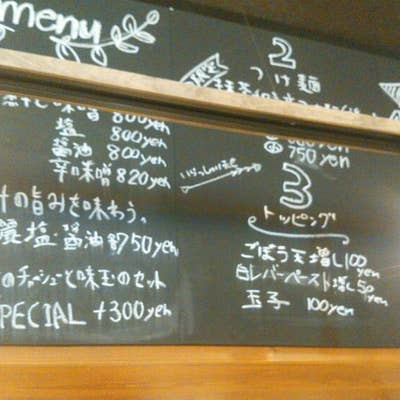 menu
味噌 800yen
塩 800yen
醤油 800yen
辛味噌 820yen
の旨みを味わう。
塩 醤油 各750yen
のチャーシューと味玉のセット
SPECIAL +300yen
2
つけ麺
750yen
3
トッピング
ごぼう天増し100yen
白レバーペースト増し50yen
玉子 100yen